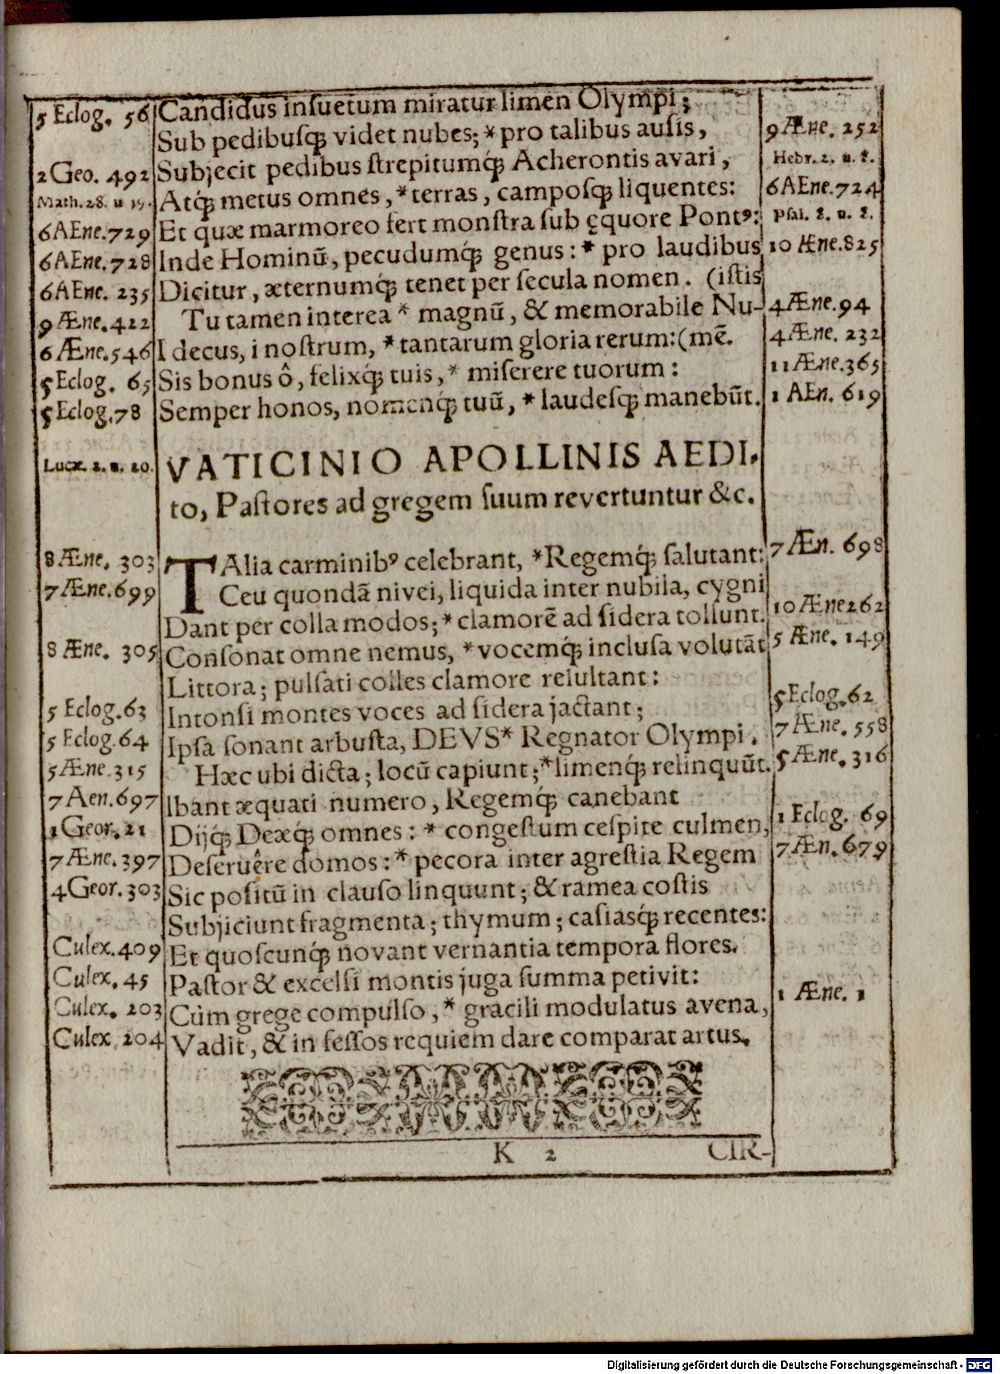 5 Eclog. 56 Candidus insuetum miratur limen Olympi;
Sub pedibusq́; videt nubes; * pro talibus ausis, 9 Æne. 252
2 Geo. 492 Subjecit pedibus strepitumq́; Acherontis avari, Hebr. 2. u. 8.
Math. 28. u 19. Atq́; metus omnes, * terras, camposq́; liquentes: 6 AEne. 724
6 AEne. 729 Et quæ marmoreo fert monstra sub ęquore Pontꝰ: Psal. 8. u. 8.
6 AEne. 728 Inde Hominũ, pecudumq́; genus: * pro laudibus 10 Æne. 825
6 AEne. 235 Dicitur, æternumq́; tenet per secula nomen. (istis
9 Æne. 422 Tu tamen interea * magnũ, & memorabile Nu- 4 Æne. 94
6 Æne. 546 I decus, i nostrum, * tantarum gloria rerum: (mẽ. 4 Æne. 232
5 Eclog. 65 Sis bonus ô, felixq́; tuis, * miserere tuorum: 11 Æne. 365
5 Eclog. 78 Semper honos, nomenq́; tuũ, * laudesq́; manebũt. 1 AEn. 619
Lucæ. 2. u. 20. VATICINIO APOLLINIS AEDI-
to, Pastores ad gregem suum revertuntur &c.
8 Æne. 303 TAlia carminibꝰ celebrant, * Regemq́; salutant: 7 Æn. 698
7 Æne. 699 Ceu quondã nivei, liquida inter nubila, cygni
Dant per colla modos; * clamorẽ ad sidera tollunt. 10 Æne 262
8 Æne. 305 Consonat omne nemus, * vocemq́; inclusa volutãt 5 Æne. 149
Littora; pulsati colles clamore resultant:
5 Eclog. 63 Intonsi montes voces ad sidera jactant; 5 Eclog. 62
5 Eclog. 64 Ipsa sonant arbusta, DEVS * Regnator Olympi. 7 Æne. 558
5 Æne 315 Hæc ubi dicta; locũ capiunt; * limenq́; relinquũt. 5 Æne. 316
7 Aen. 697 Ibant æquati numero, Regemq́; canebant
1 Geor. 21 Dijq́; Deæq́; omnes: * congestum cespite culmen, 1 Eclog. 69
7 Æne. 397 Deseruêre domos: * pecora inter agrestia Regem 7 Æn. 679
4 Geor. 303 Sic positũ in clauso linquunt; & ramea costis
Subjiciunt fragmenta; thymum; casiasq́; recentes:
Culex. 409 Et quoscunq́; novant vernantia tempora flores.
Culex. 45 Pastor & excelsi montis juga summa petivit:
Culex. 203 Cùm grege compulso, * gracili modulatus avena, 1 Æne. 1
Culex 204 Vadit, & in fessos requiem dare comparat artus.
K 2 CIR-
Digitalisierung gefördert durch die Deutsche Forschungsgemeinschaft - DFG